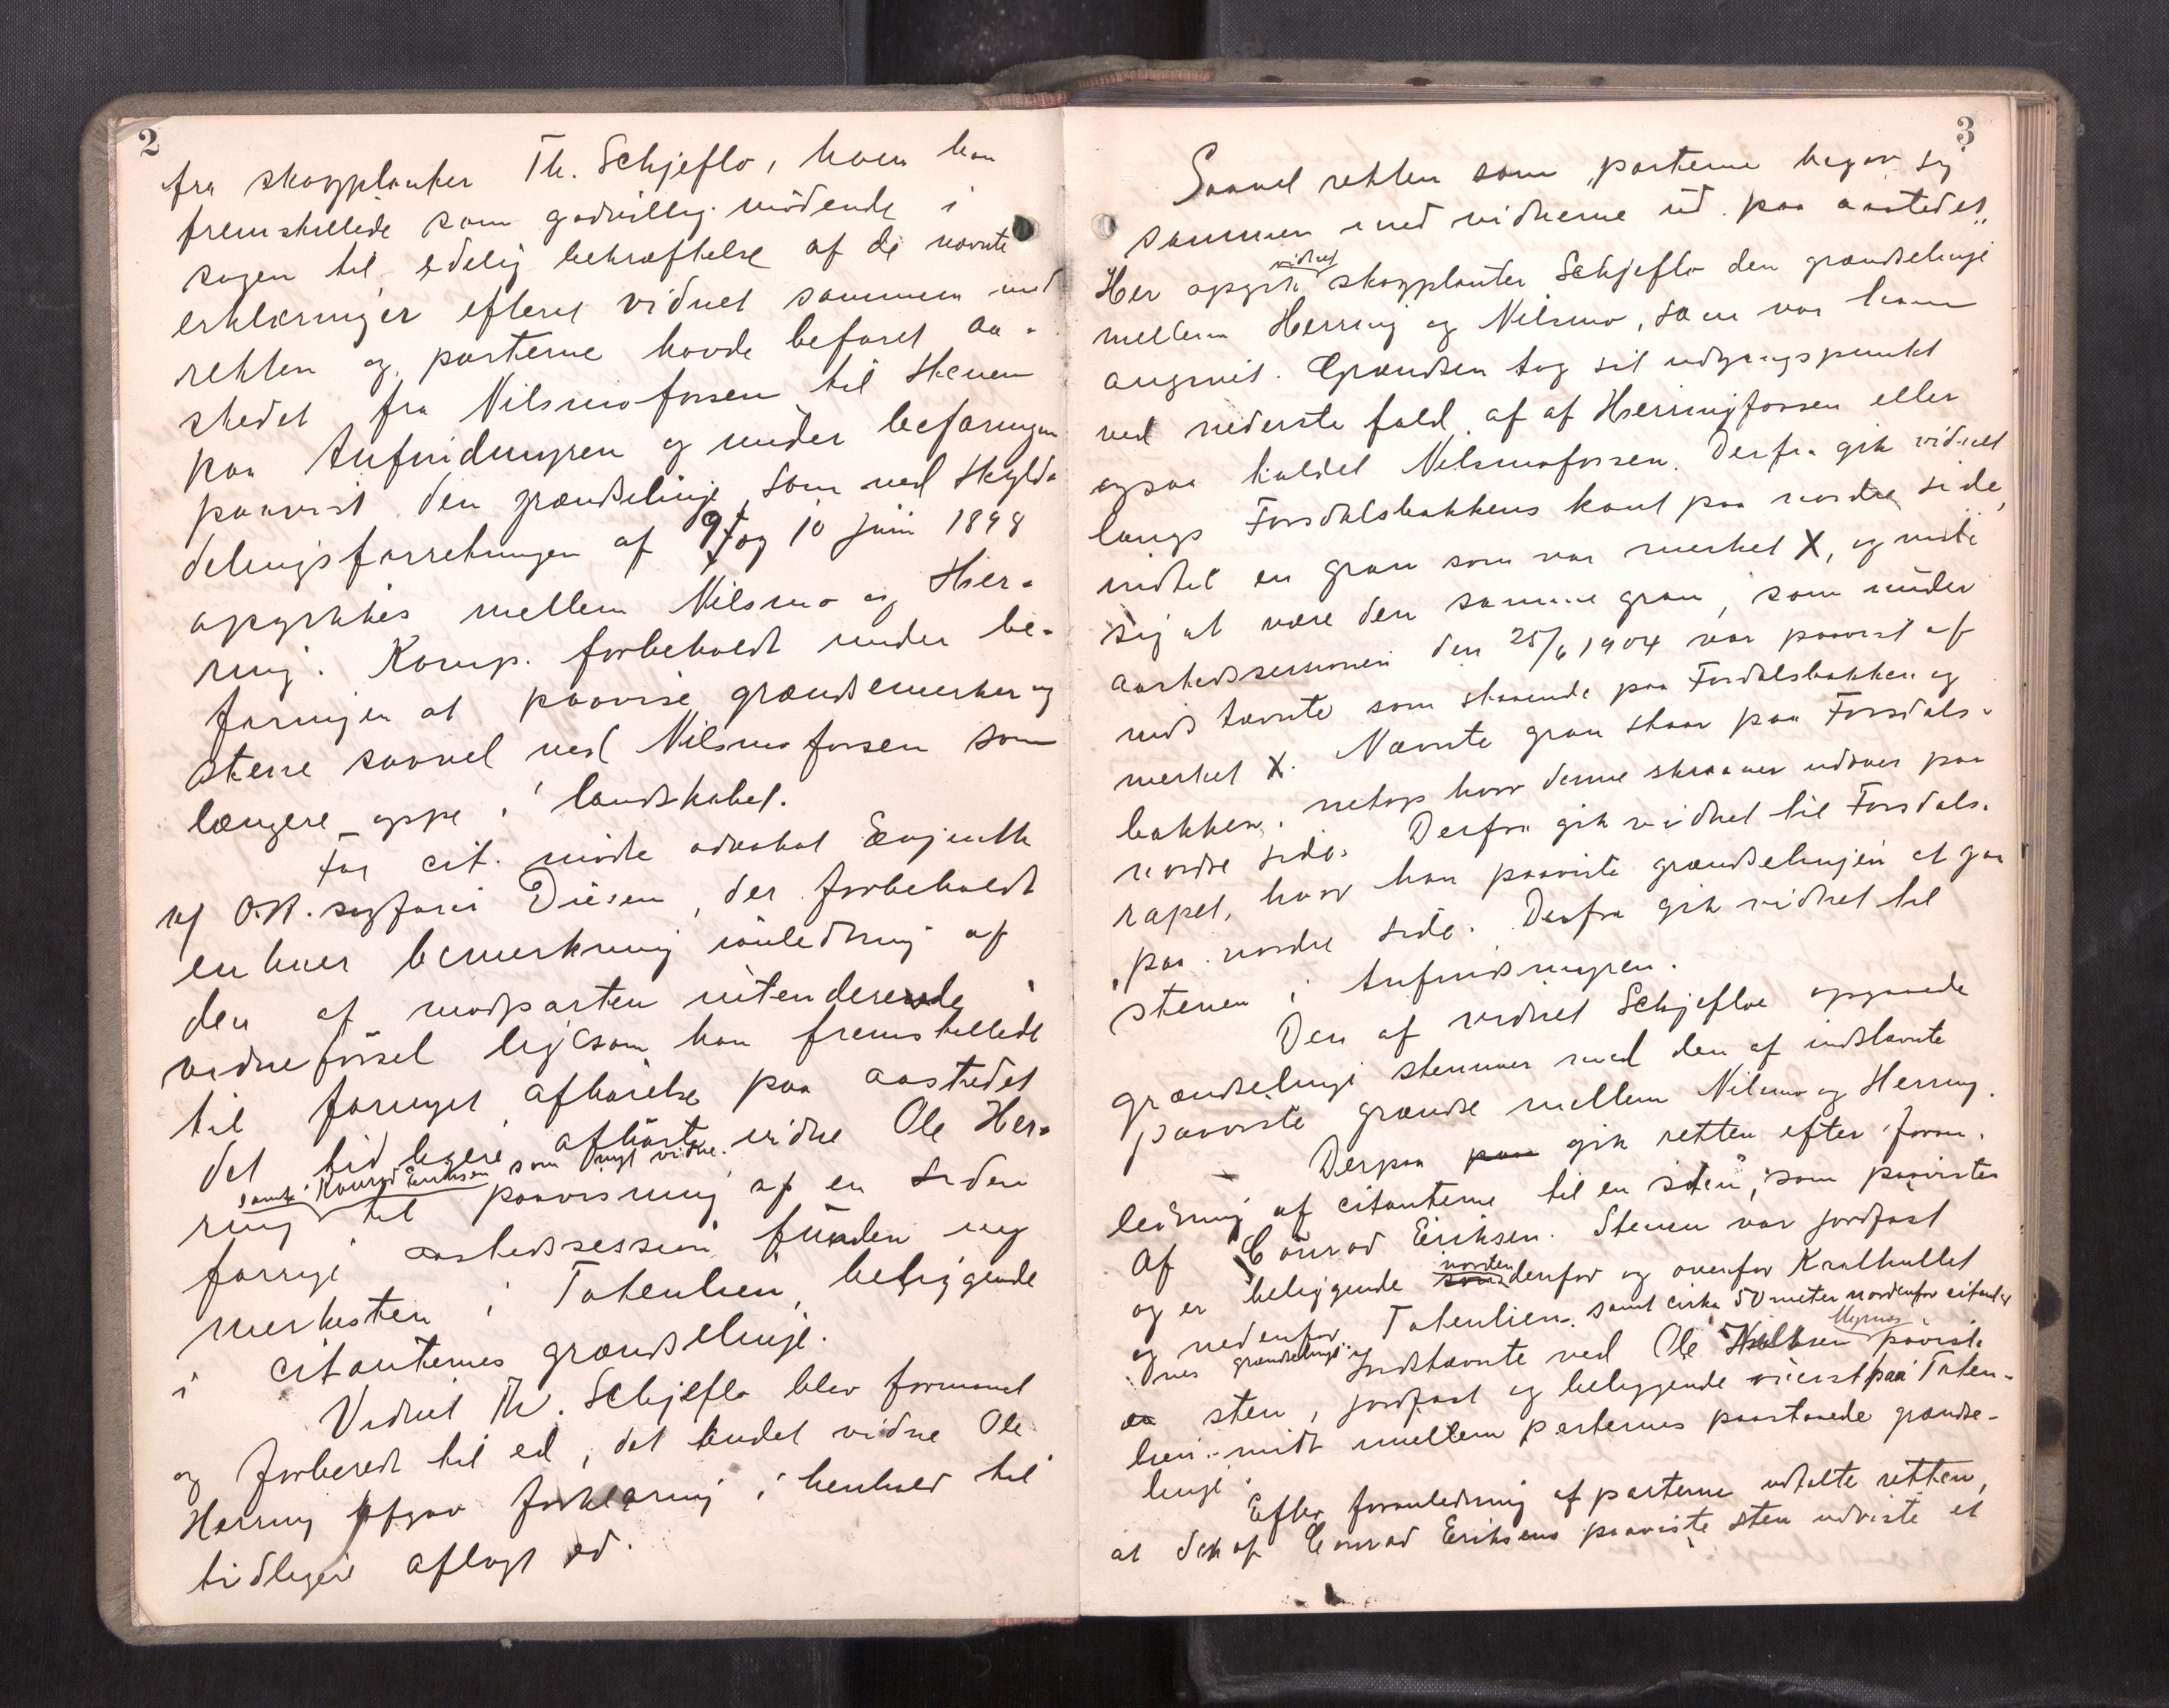 2
fra skogplanter Th. Schjeflo, hvem han
fremstillede som godvillig mödende i
sagen til edelig bekræftelse af de nævnte
erklæringer efterat vidnet sammen med
retten og parterne havde befaret aa-
stedet fra Nilsmofossen til stenen
paa Aufindmyren og under befaringen
paavist den grændselinje, som ved skyld-
delingsforretningen af 9 og 10 juni 1898
opgikkes mellem Nilsmo og Hier-
ring. Komp. forbeholdt under be-
faringen at paavise grændsemerker og
stene saavel ved Nilsmofossen som
længere oppe i landskabet.
For cit. mödte advokat Evjenth
v/ O.R. sagförer Diesen, der forbeholdt
enhver bemerkning i anledning af
den af modparten intenderede
vidneförsel ligesom han fremstillede
til fornyet afhörelse paa aastedet
det tidligere afhörte vidne Ole Her-
samt Konrad Eriksen som nyt vidne
ring til paavisning af en siden
forrige aastedssession funden ny
merkesten i Tatenlien, beliggende
i citanternes grændselinje.
Vidnet Th. Schjeflo blev formanet
og forberedt til ed, det andet vidne Ole
Herring afgav forklaring i henhold til
tidligere aflagt ed.
3
Saavel retten som parterne begav sig
sammen med vidnerne ud paa aastedet.
vidnet
Her opgik skogplanter Schjeflo den grændselinje
mellem Herring og Nilsmo, som var ham
angivit. Grændsen tog sit udgangspunkt
ved nederste fald af af Hierringfossen eller
ogsaa kaldet Nilsmofossen. Derfra gik vidnet
langs Forsdalsbakkens kant paa nordre side,
indtil en gran som var merket X, og viste
sig at være den samme gran, som under
aastedssessionen den 25/6 1904 var paavist af
indstævnte som staaende paa Forsdalsbakken og
merket X. Nævnte gran staar paa Forsdals-
bakken, netop hvor denne skraaner udover paa
nordre side. Derfra gik vidnet til Forsdals-
rapet, hvor han paaviste grændselinjen at gaa
paa nordre side. Derfra gik vidnet til
stenen i Aufindsmyren.
Den af vidnet Schjefloe opgaaede
grændselinje stemmer med den af indstævnte
paaviste grændse mellem Nilsmo og Herring.
Derpaa paa gik retten efter foran-
ledning af citanterne til en sten, som paavistes
af Conrad Eriksen. Stenen var jordfast
norden
og er beliggende söndenfor og ovenfor Kralhullet
og nedenfor Tatenlien, samt cirka 50 meter nordenfor citanter-
nes grændselinje. Indstævnte ved Ole Nielsen paaviste
Myrnes
en sten, jordfast og beliggende överst paa Taten-
lien midt mellem parternes paastaaede grændse-
linje.
Efter foranledning af parterne udtalte retten,
at den af Conrad Eriksens paaviste sten udviste et